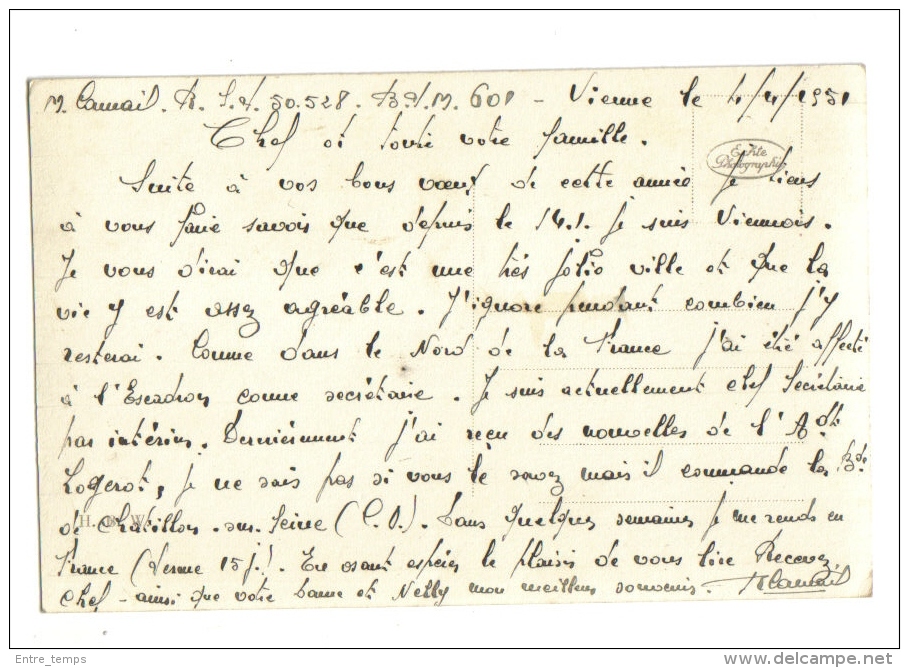 M. Camail. R. S.A. 50.528. B.P.M. 601 - Vienne le 4/4/1951
Chef et toute votre famille.
Echte
Photographie
Suite à vos bons vœux de cette année je tiens
à vous faire savoir que depuis le 14.1. je suis Viennois.
Je vous dirai que c'est une très jolie ville et que la
vie y est assez agréable. J'ignore pendant combien j'y
resterai. Comme dans le Nord de la France j'ai été affecté
à l'Escadron comme secrétaire. Je suis actuellement chef Secrétaire
par intérim. Dernièrement j'ai reçu des nouvelles de l'Adt
Logerot, je ne sais pas si vous le savez mais il commande la Bde
de Chatillon-sur-Seine (C.O). Dans quelques semaines je me rends en
H. W.
France (Perme 15 j.). En osant espérer le plaisir de vous lire Recevez,
Chef - ainsi que votre Dame et Nelly mon meilleur souvenir. Camail
Entre_temps
www.delcampe.net